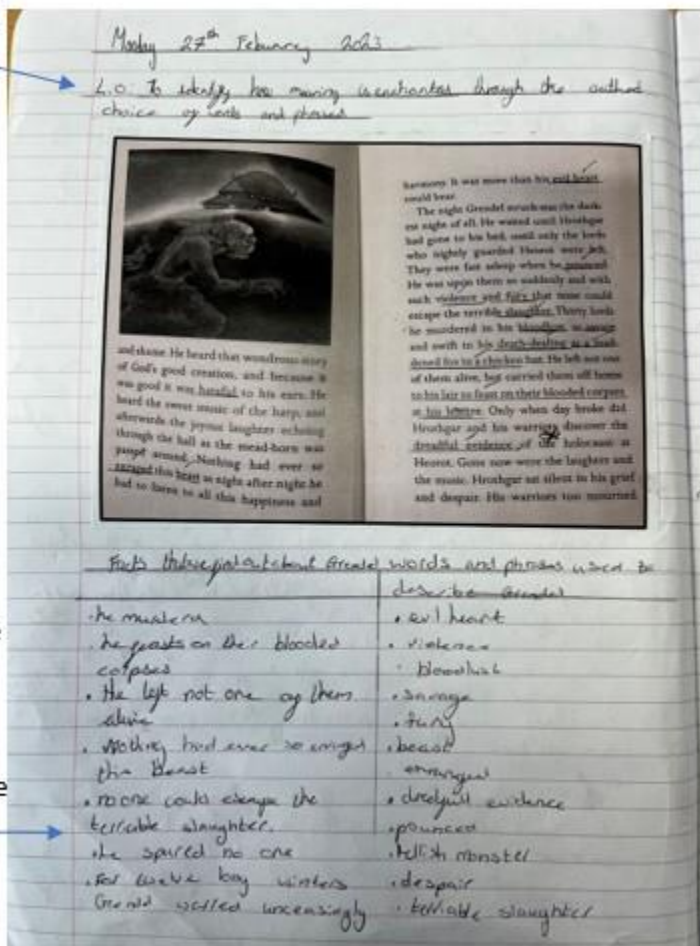 Monday 27th Febunrey 2023
L.O: To identify how meaning is enchantes through the authod
choice of words and phrases
and shame. He heard that wondrous story
of God's good creation, and because it
was good it was hateful to his ears. He
heard the sweet music of the harp, and
afterwards the joyous laughter echoing
through the hall as the mead-horn was
passed around. Nothing had ever so
enraged this beast as night after night he
had to listen to all this happiness and
harmony. It was more than his evil heart
could bear.
The night Grendel struck was the dark-
est night of all. He waited until Hrothgar
had gone to his bed, until only the lords
who nightly guarded Heorot were left.
They were fast asleep when he pounced.
He was upon them so suddenly and with
such violence and fury that none could
escape the terrible slaughter. Thirty lords
he murdered in his bloodlust, as savage
and swift in his death-dealing as a
fox in a chicken hut. He left not one
of them alive, but carried them off home
to his lair to feast on their blooded corpses
at his leisure. Only when day broke did
Hrothgar and his warriors discover the
dreadful evidence of the holocaust at
Heorot. Gone now were the laughter and
the music. Hrothgar sat silent in his grief
and despair. His warriors too mourned
Facts find out about Grendel words and phrases used to
describe Grendel
• he murders
• he feasts on their blooded
corpses
• He left not one of them
alive
• Nothing had ever so enraged
this Beast
• no one could escape the
terrable slaughter.
• he spared no one
• For twelve long winters
unceasingly
• evil heart
• violence
• bloodlust
• savage
• fury
• beast
enranged
• dredfull evidence
• pounced
• hellish monster
• despair
• terriable slaughter
e